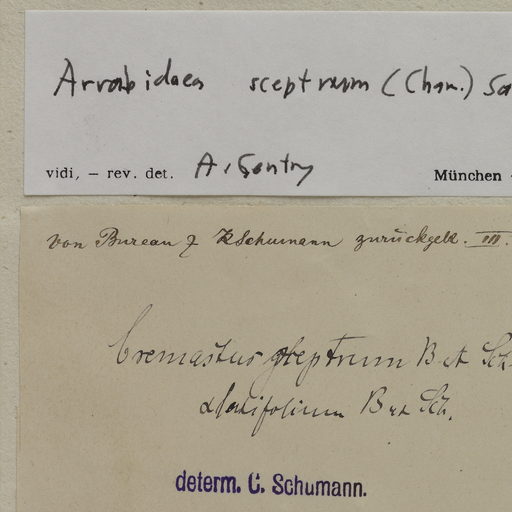 Arrabidaea sceptrum (Cham.) Sa
vidi, – rev. det. A. Gentry München
von Bureau & K Schumann zurückgek. III.
Cremastus sceptrum B et Sch
latifolium B et Sch.
determ. C. Schumann.